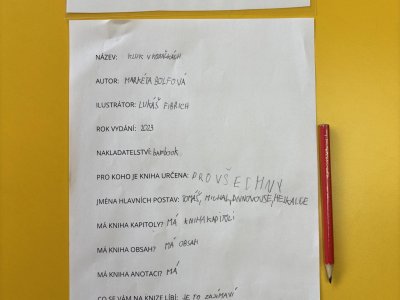 NÁZEV: KLUK V KOPAČKÁCH
AUTOR: MARKÉTA BOLFOVÁ
ILUSTRÁTOR: LUKÁŠ FIBRICH
ROK VYDÁNÍ: 2023
NAKLADATELSTVÍ: bambook
PRO KOHO JE KNIHA URČENA: PRO VŠECHNY
JMÉNA HLAVNÍCH POSTAV: TOMÁŠ, MICHAL,
MÁ KNIHA KAPITOLY? MÁ KNIHA KAPITOLI
MÁ KNIHA OBSAH? MÁ OBSAH
MÁ KNIHA ANOTACI? MÁ
CO SE VÁM NA KNIZE LÍBÍ: JE TO ZAJÍMAVÍ